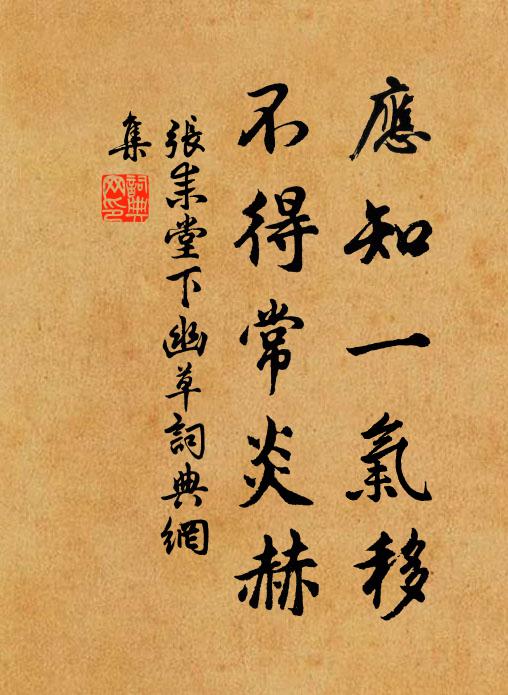 應知一氣移
不得常炎赫
張耒堂下幽草詞典網
集
詞典
网印